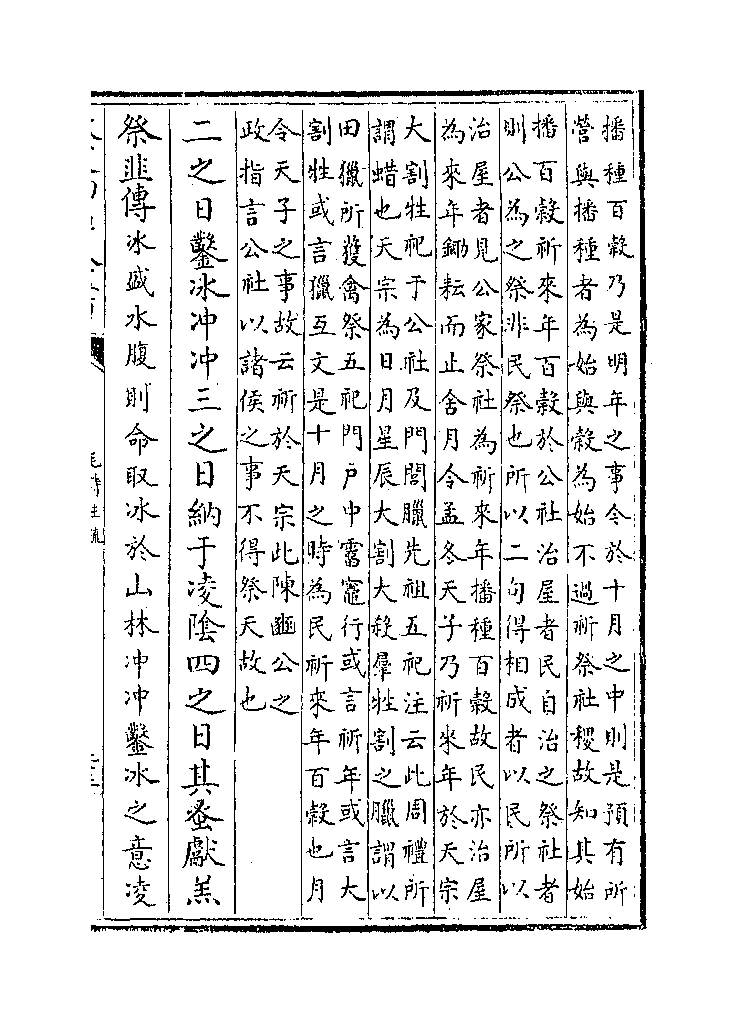 播種百榖乃是明年之事今於十月之中則是預有所
營與播種者為始與榖為始不過祈祭社稷故知其始
播百榖祈來年百榖於公社治屋者民自治之祭社者
則公為之祭非民祭也所以二句得相成者以民所以
治屋者見公家祭社為祈來年播種百榖故民亦治屋
為來年鋤耘而止舍月令孟冬天子乃祈來年於天宗
大割牲祀于公社及門閭臘先祖五祀注云此周禮所
謂蜡也天宗為日月星辰大割大殺羣牲割之臘謂以
田獵所獲禽祭五祀門戶中霤竈行或言祈年或言大
割牲或言獵互文是十月之時為民祈來年百榖也月
令天子之事故云祈於天宗此陳豳公之
政指言公社以諸侯之事不得祭天故也
二之日鑿冰冲冲三之日納于凌隂四之日其蚤獻羔
祭韭傳冰盛水腹則命取冰於山林冲冲鑿冰之意凌
毛詩注疏